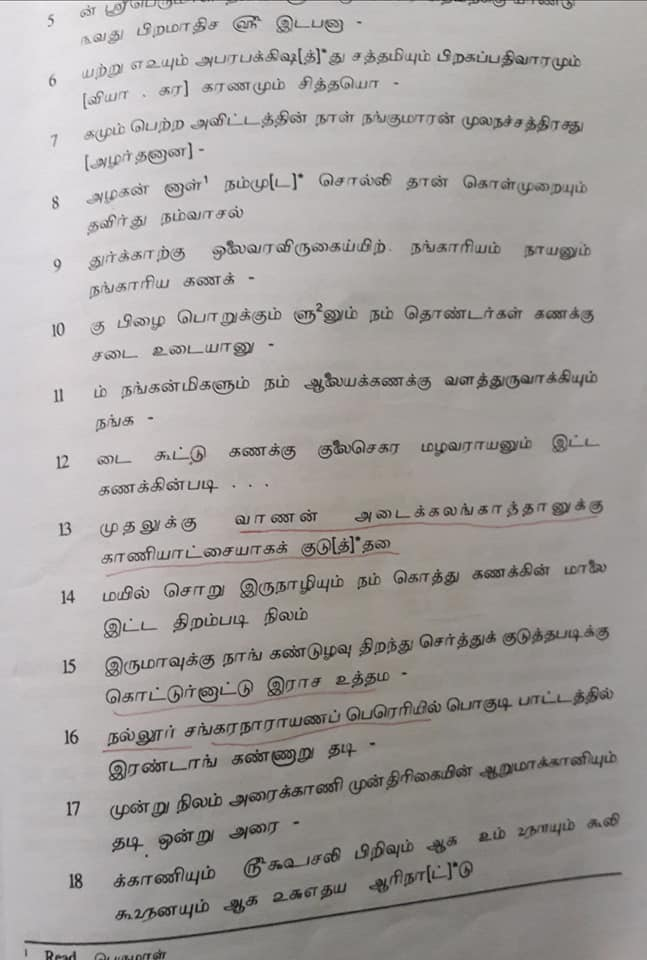 5 ன் ஸ்ரீபெருமாள்
ஙவது பிறமாதிச ஸ்ரீ இடபஞ -
6 யற்று எஉயும் அபரபக்கிஷ[த்]*து சத்தமியும் பிறகப்பதிவாரமும்
[வியா . கர] கரணமும் சித்தயொ -
7 கமும் பெற்ற அவிட்டத்தின் நாள் நங்குமாரன் முலநச்சத்திரசது
[அழர்தனுன] -
8 அழகன் னுள்¹ நம்மு[ட]* சொல்லி தான் கொள்முறையும்
தவிர்து நம்வாசல்
9 துர்க்காற்கு ஒலைவரவிருகைய்மிற். நங்காரியம் நாயனும்
நங்காரிய கணக் -
10 கு பிழை பொறுக்கும் ளு²னும் நம் தொண்டர்கள் கணக்கு
சடை உடையானு -
11 ம் நங்கன்மிகளும் நம் ஆலையக்கணக்கு வளத்துருவாக்கியும்
நங்க -
12 டை கூட்டு கணக்கு குலைசெகர மழவராயனும் இட்ட
கணக்கின்படி . . .
13 முதலுக்கு வாணன் அடைக்கலங்காத்தானுக்கு
காணியாட்சையாகக் குடு[த்]*தலை
14 மயில் சொறு இருநாழியும் நம் கொத்து கணக்கின் மாலை
இட்ட திறம்படி நிலம்
15 இருமாவுக்கு நாங் கண்டுழவு திறந்து செர்த்துக் குடுத்தபடிக்கு
கொட்டுர்னுட்டு இராச உத்தம -
16 நல்லூர் சங்கரநாராயணப் பெரெரியில் பொகுடி பாட்டத்தில்
இரண்டாங் கண்ணுறு தடி -
17 முன்று நிலம் அரைக்காணி முன்திரிகையின் ஆறுமாக்கானியும்
தடி ஒன்று அரை -
18 க்காணியும் பிறிவும் ஆக உம் உநாயும் கூலி
ஆக ஆரிநா[ட்]*டு
¹ Read பெருமாள்